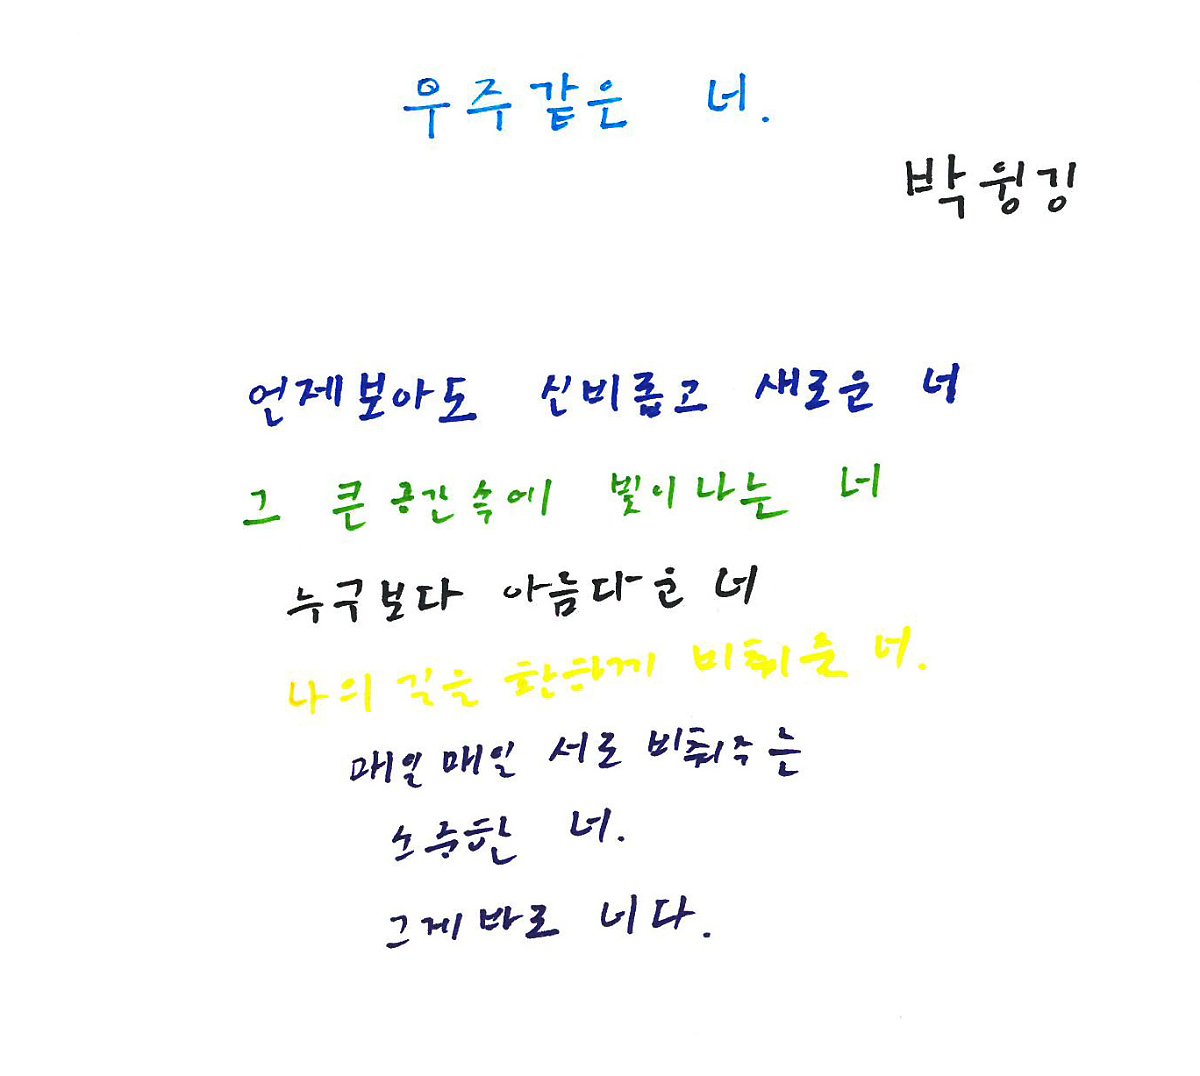 우주같은 너.
박윙깅
언제보아도 신비롭고 새로운 너
그 큰 공간속에 빛이나는 너
누구보다 아름다운 너
나의 길을 환하게 비춰준 너.
매일매일 서로 비춰주는
소중한 너.
그게바로 너다.